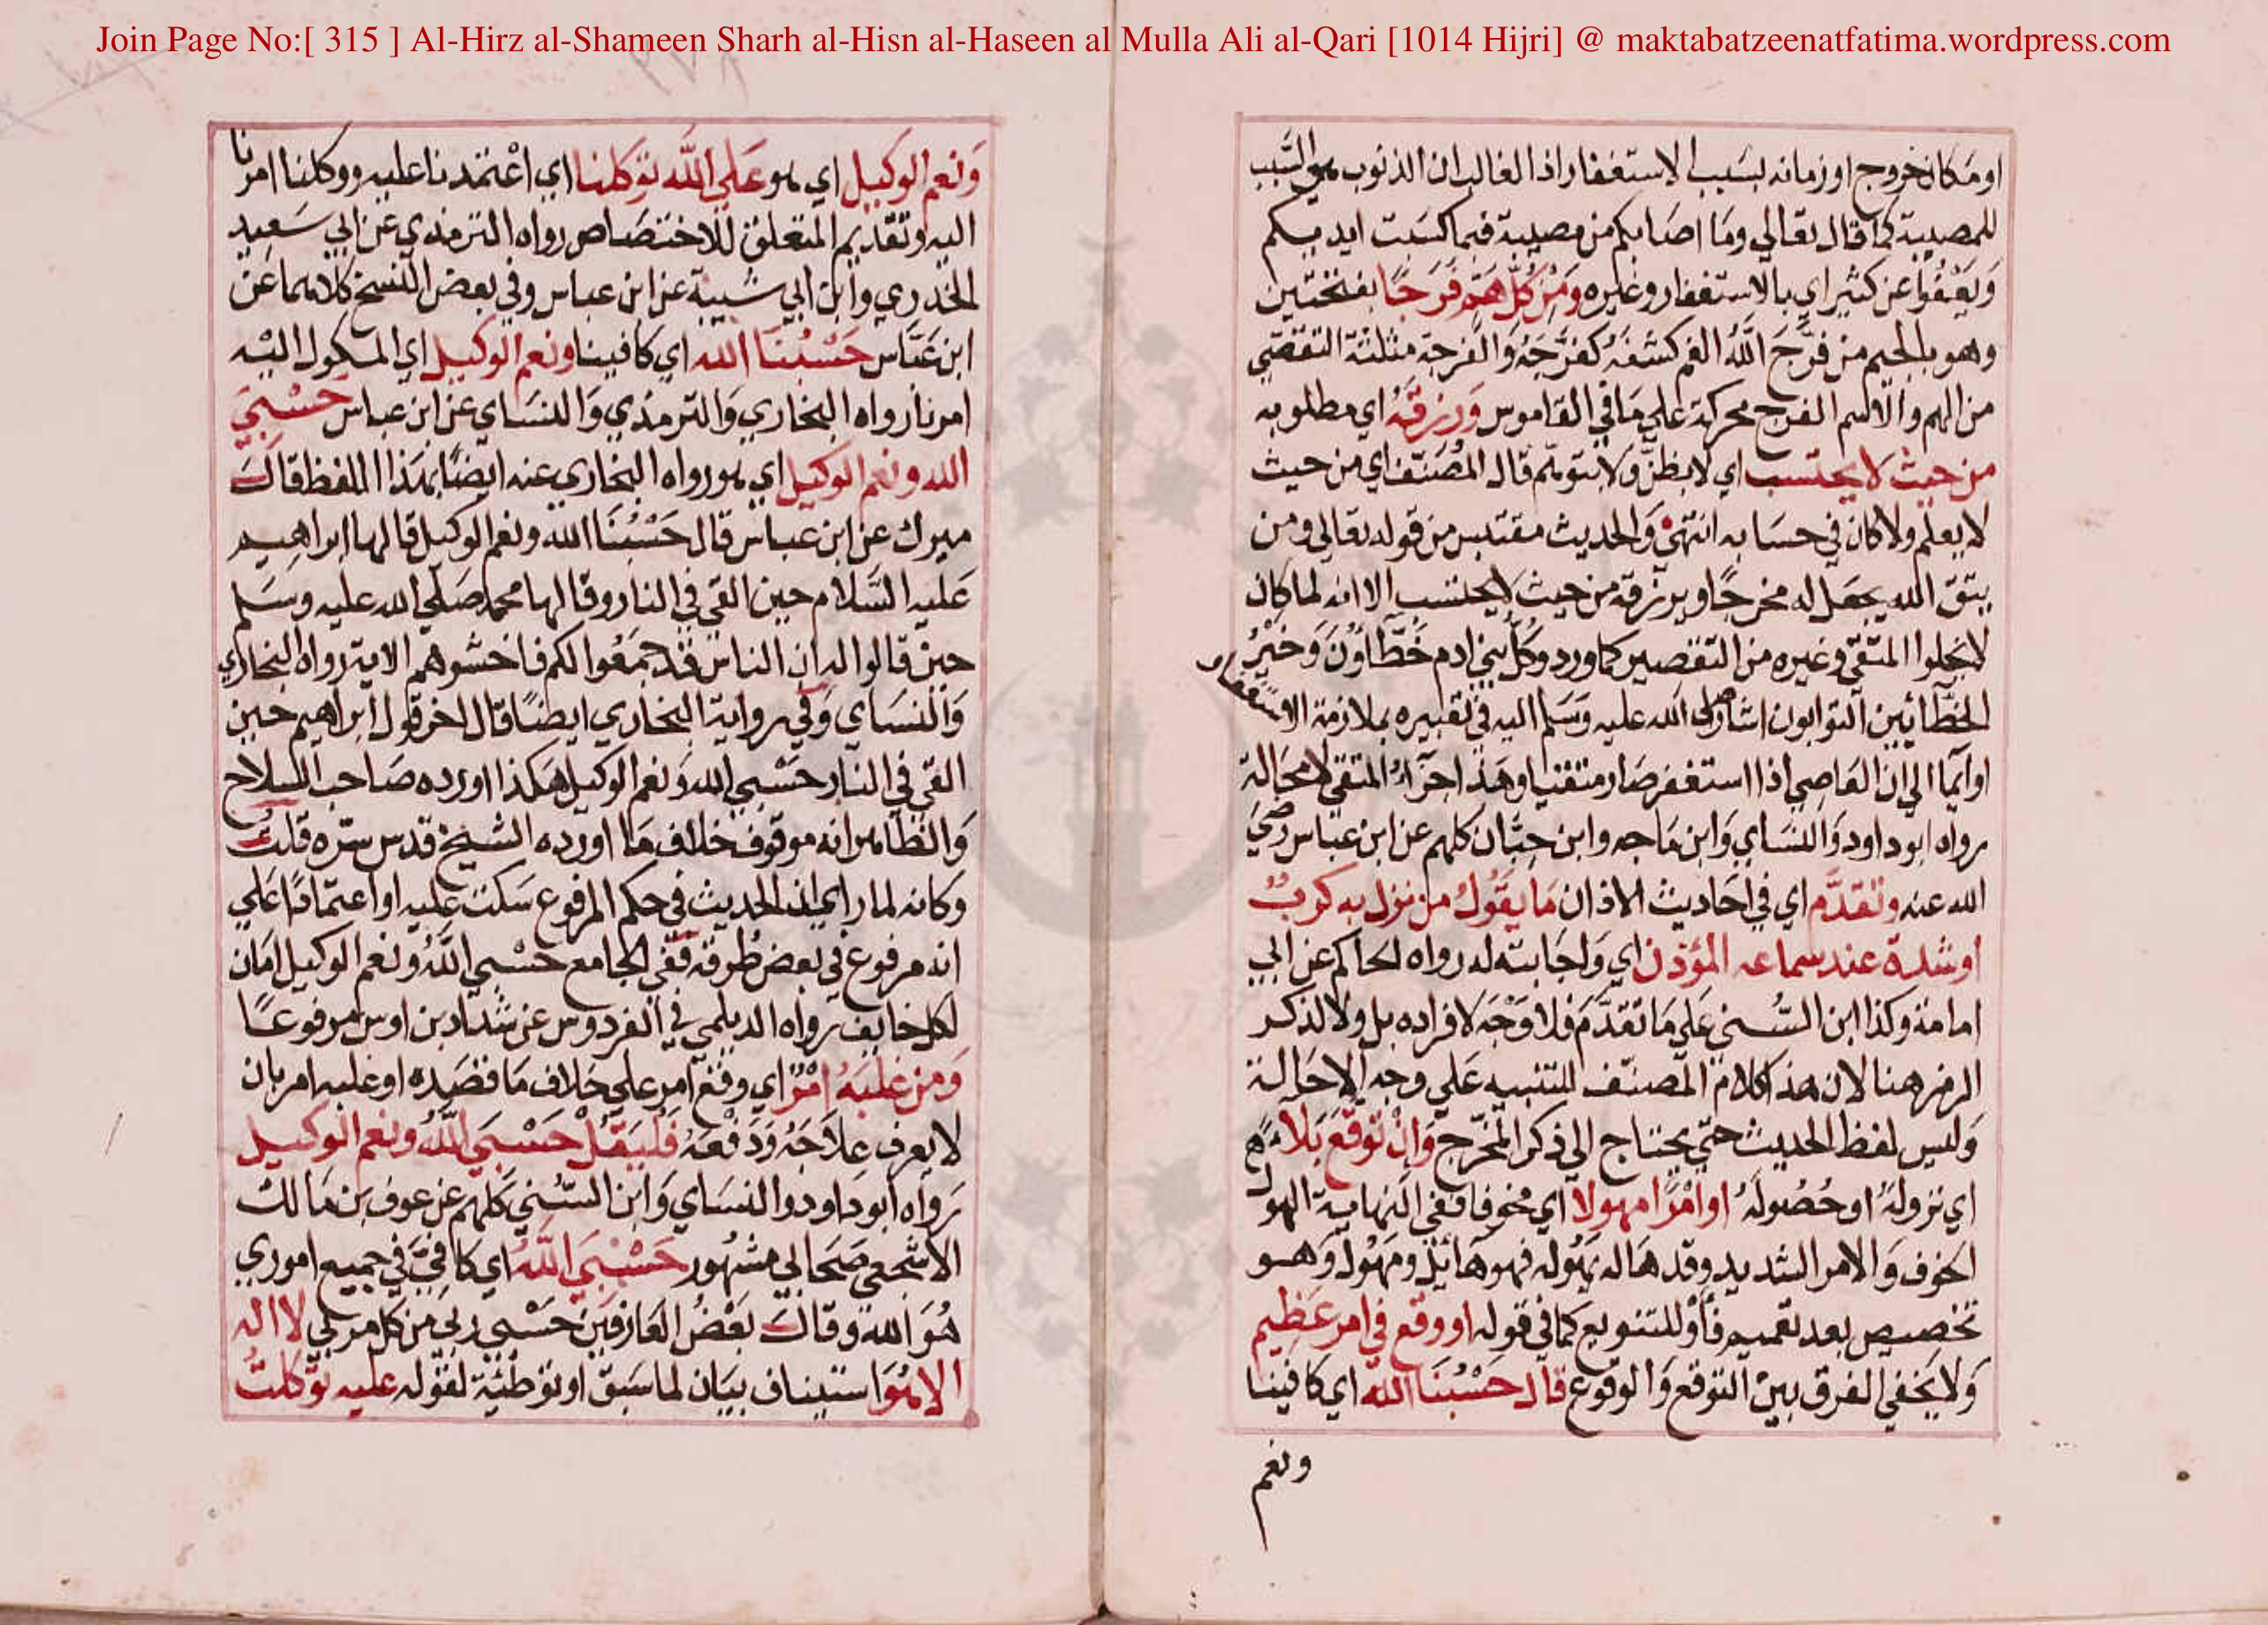 Join Page No:[ 315 ] Al-Hirz al-Shameen Sharh al-Hisn al-Haseen al Mulla Ali al-Qari [1014 Hijri] @ maktabatzeenatfatima.wordpress.com
او مكان خروج او زمانه بسبب الاستغفار اذ الغالب ان الذنوب هي السبب
للمصيبة كما قال تعالي وما اصابكم من مصيبة فبما كسبت ايديكم
ويعفوا عن كثير اي بالاستغفار وغيره ومن كل هم فرجا بفتحتين
وهو بالجيم من فرج الله الغم كشفه كفرجه والفرجة مثلثة التفصي
من الهم والاسم الفرج محركة علي ما في القاموس ورزقه اي مطلوبه
من حيث لا يحتسب اي لا يظن ولا يتوهم قال المصنف اي من حيث
لا يعلم ولا كان في حسابه انتهي والحديث مقتبس من قوله تعالي ومن
يتق الله يجعل له مخرجا ويرزقه من حيث لا يحتسب الا انه لما كان
لا يخلوا المتقي وغيره من التقصير كما ورد وكل بني ادم خطاؤن وخير
الخطائين التوابون اشار صلى الله عليه وسلم اليه في تعبيره بملازمة الاستغفار
او ايما الي ان العاصي اذا استغفر صار متقيا وهذا جزاء المتقي لا محالة
رواه ابو داود والنساي وابن ماجه وابن حبان كلهم عن ابن عباس رضي
الله عنه وتقدم اي في احاديث الاذان ما يقول من نزل به كرب
او شدة عند سماعه المؤذن اي واجابته له رواه الحاكم عن ابي
امامة وكذا ابن السني علي ما تقدم فلا وجه لافراده بل ولا لذكر
الرمز هنا لان هذا كلام المصنف للتنبيه علي وجه الاحالة
وليس لفظ الحديث حتي يحتاج الي ذكر المخرج وان توقع بلاء
اي نزوله او حصوله او امرا مهولا اي مخوفا ففي النهاية الهول
الخوف والامر الشديد وقد هاله يهوله فهو هائل ومهول وهو
تخصيص بعد تعميم فأو للتنويع كما في قوله او وقع في امر عظيم
ولا يخفي الفرق بين التوقع والوقوع قال حسبنا الله اي كافينا
ونعم
ونعم الوكيل اي هو علي الله توكلنا اي اعتمدنا عليه ووكلنا امرنا
اليه وتقديم المتعلق للاختصاص رواه الترمذي عن ابي سعيد
الخدري وابن ابي شيبة عن ابن عباس وفي بعض النسخ كلاهما عن
ابن عباس حسبنا الله اي كافينا ونعم الوكيل اي الموكول اليه
امرنا رواه البخاري والترمذي والنساي عن ابن عباس حسبي
الله ونعم الوكيل اي هو رواه البخاري عنه ايضا بهذا اللفظ قال
ميرك عن ابن عباس قال حسبنا الله ونعم الوكيل قالها ابراهيم
عليه السلام حين القي في النار وقالها محمد صلي الله عليه وسلم
حين قالوا له ان الناس قد جمعوا لكم فاخشوهم الاية رواه البخاري
والنساي وفي رواية البخاري ايضا قال اخر قول ابراهيم حين
القي في النار حسبي الله ونعم الوكيل هكذا اورده صاحب السلاح
والظاهر انه موقوف خلاف ما اورده الشيخ قدس سره قلت
وكانه لما راي ان الحديث في حكم المرفوع سكت عليه او اعتمادا علي
انه مرفوع في بعض طرقه ففي الجامع حسبي الله ونعم الوكيل امان
لكل خايف رواه الديلمي في الفردوس عن شداد بن اوس مرفوعا
ومن غلبه امر اي وقع امر علي خلاف ما قصده او غلبه امر بان
لا يعرف علاجه ودفعه فليقل حسبي الله ونعم الوكيل
رواه ابو داود والنساي وابن السني كلهم عن عوف بن مالك
الاشجعي صحابي مشهور حسبي الله اي كافي في جميع اموري
هو الله وقال بعض العارفين حسبي ربي من كل مربي لا اله
الا هو استيناف بيان لما سبق او توطئة لقوله عليه توكلت